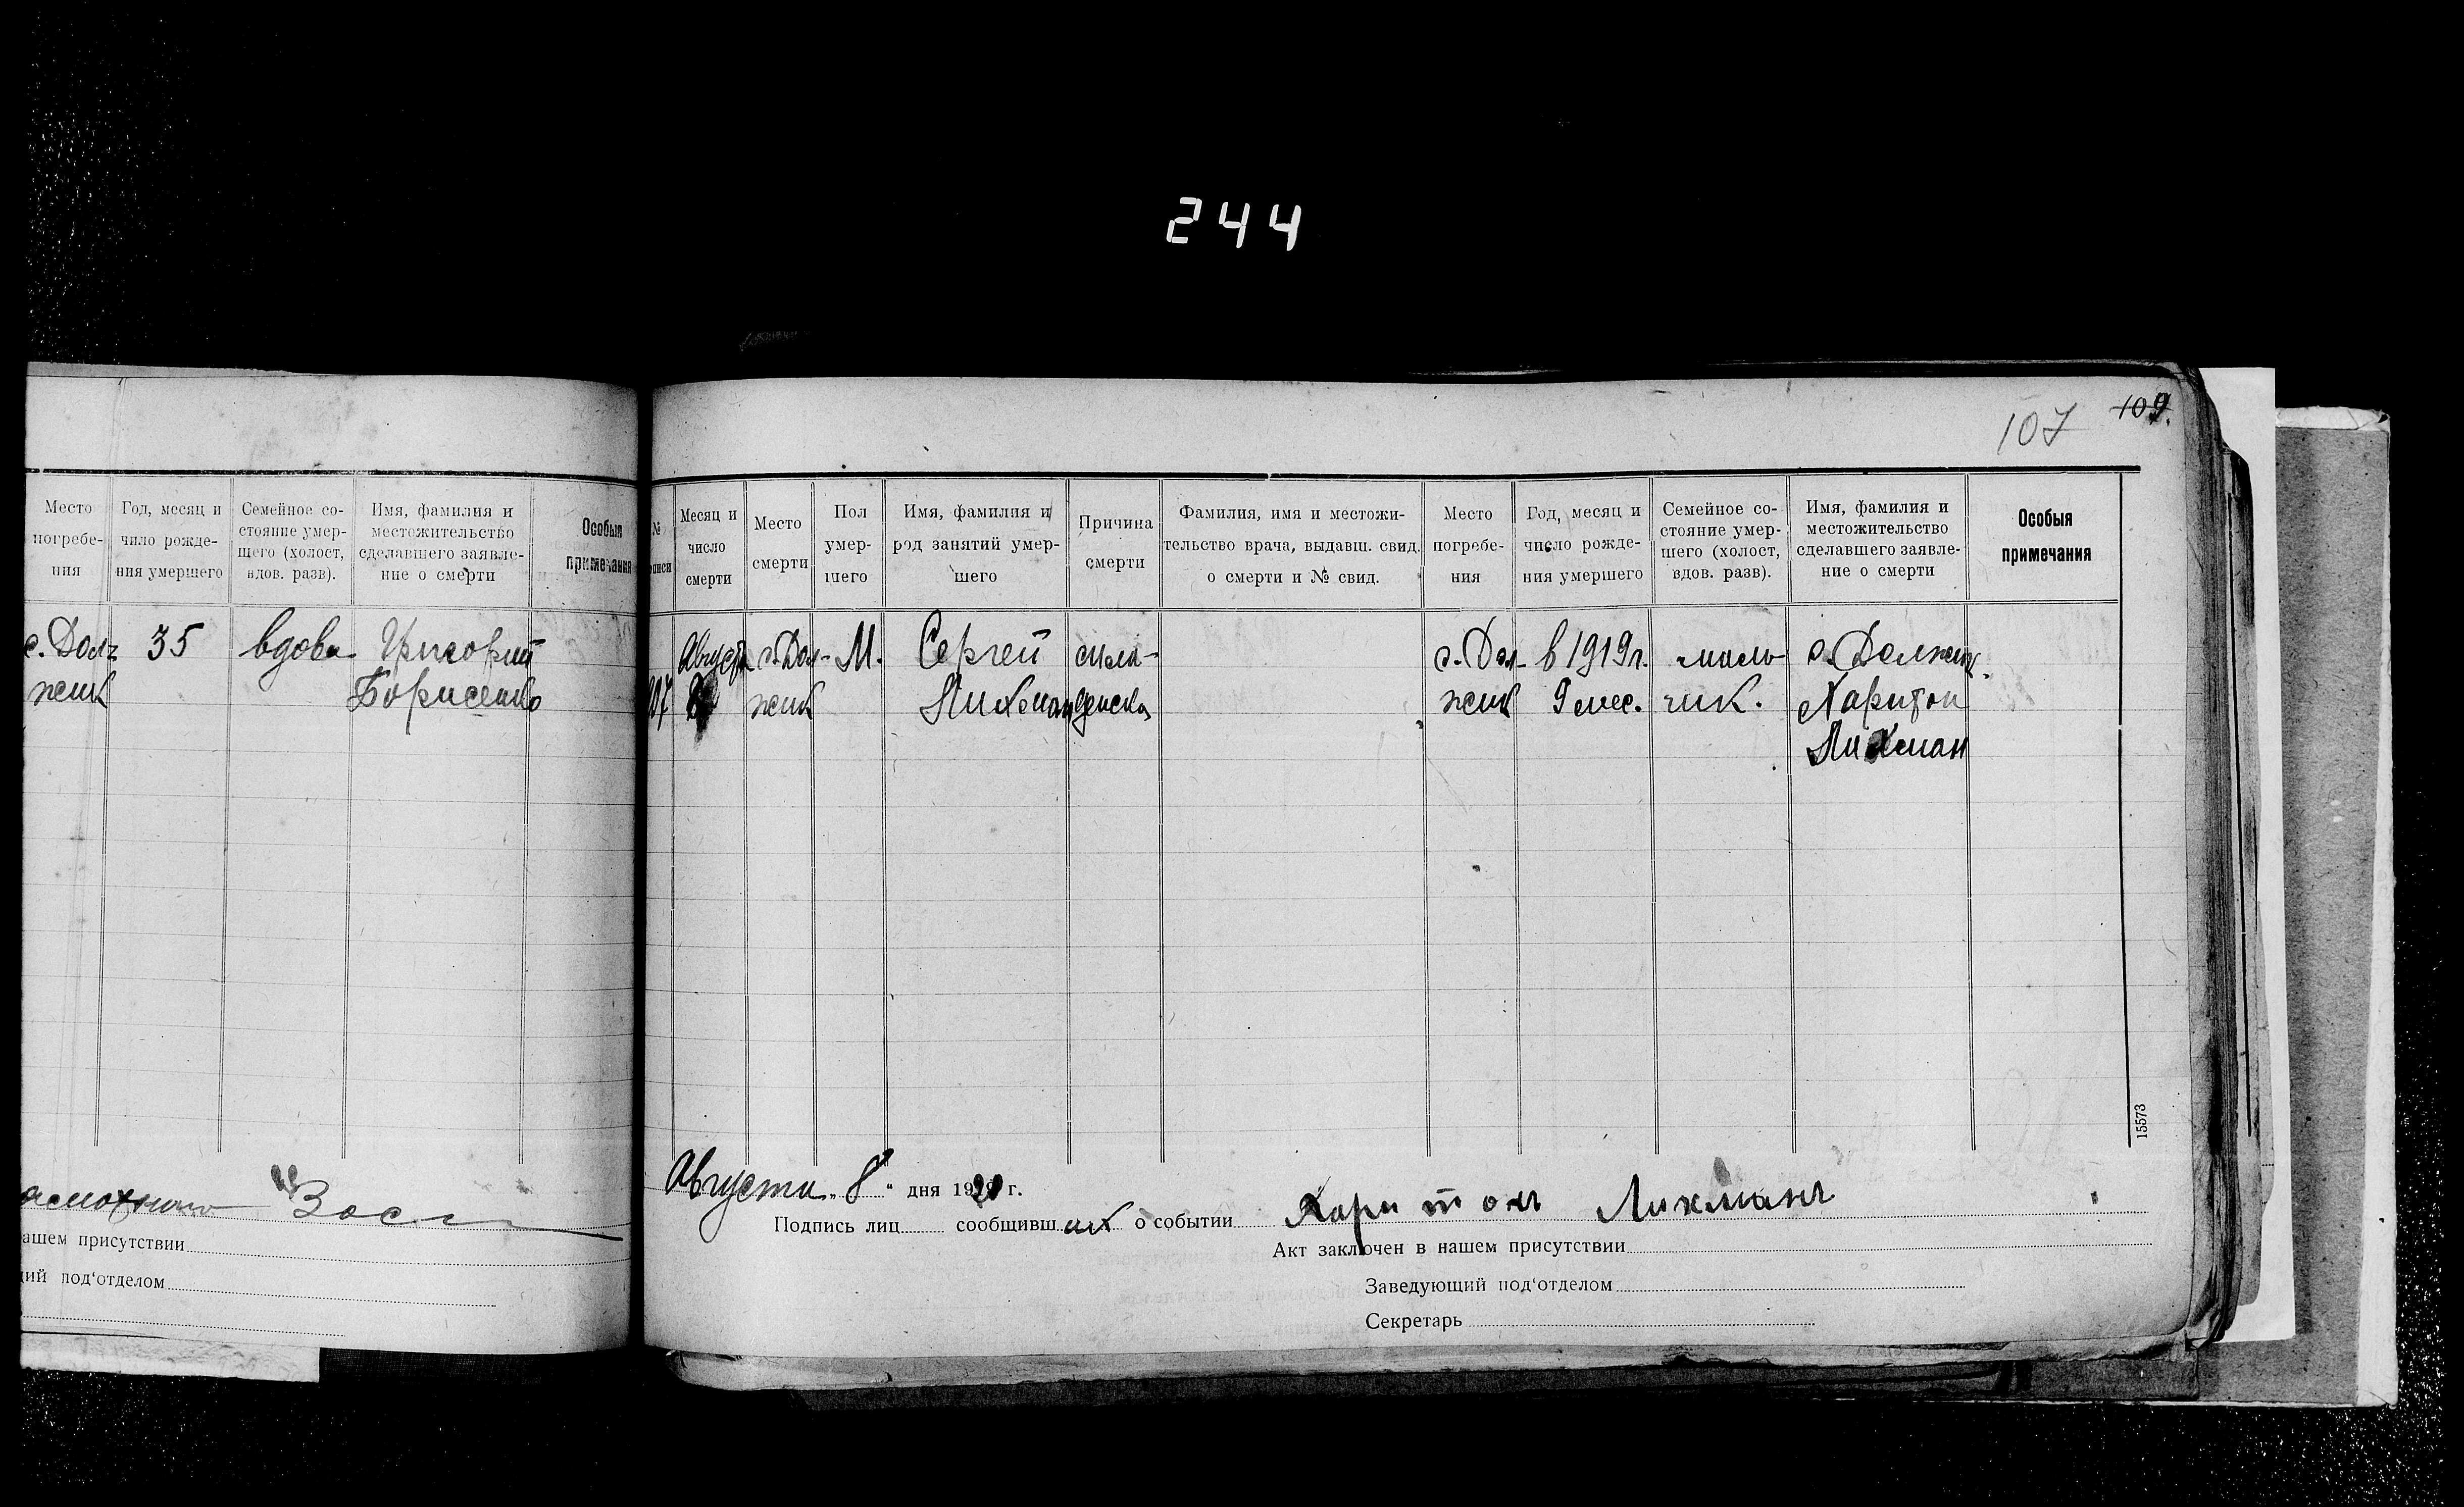 244
107 109.
Место погребе-ния
Год, месяц и число рожде-ния умершего
Семейное со-стояние умер-шего (холост, вдов. разв).
Имя, фамилия и местожительство сделавшего заявле-ние о смерти
Особыя примечания
с. Долж
жик
35
вдова
Григорий
Борисенко
Вас
ашем присутствии
ий под'отделом
№
писи
Месяц и число смерти
Место смерти
Пол умер-шего
Имя, фамилия и род занятий умер-шего
Причина смерти
Фамилия, имя и местожи-тельство врача, выдавш. свид. о смерти и № свид.
Место погребе-ния
Год, месяц и число рожде-ния умершего
Семейное со-стояние умер-шего (холост, вдов. разв).
Имя, фамилия и местожительство сделавшего заявле-ние о смерти
Особыя примечания
107
Август
с. Дол-
жик
М.
Сергей
Лихман
с. Дол-
жик
в 1919 г.
9 мес.
маль
чик.
с. Должик
Харитон
Лихман
15573
Августа „8“ дня 1920 г.
Подпись лиц сообщивших о событии Харитонъ Лихманъ
Акт заключен в нашем присутствии
Заведующий под'отделом
Секретарь